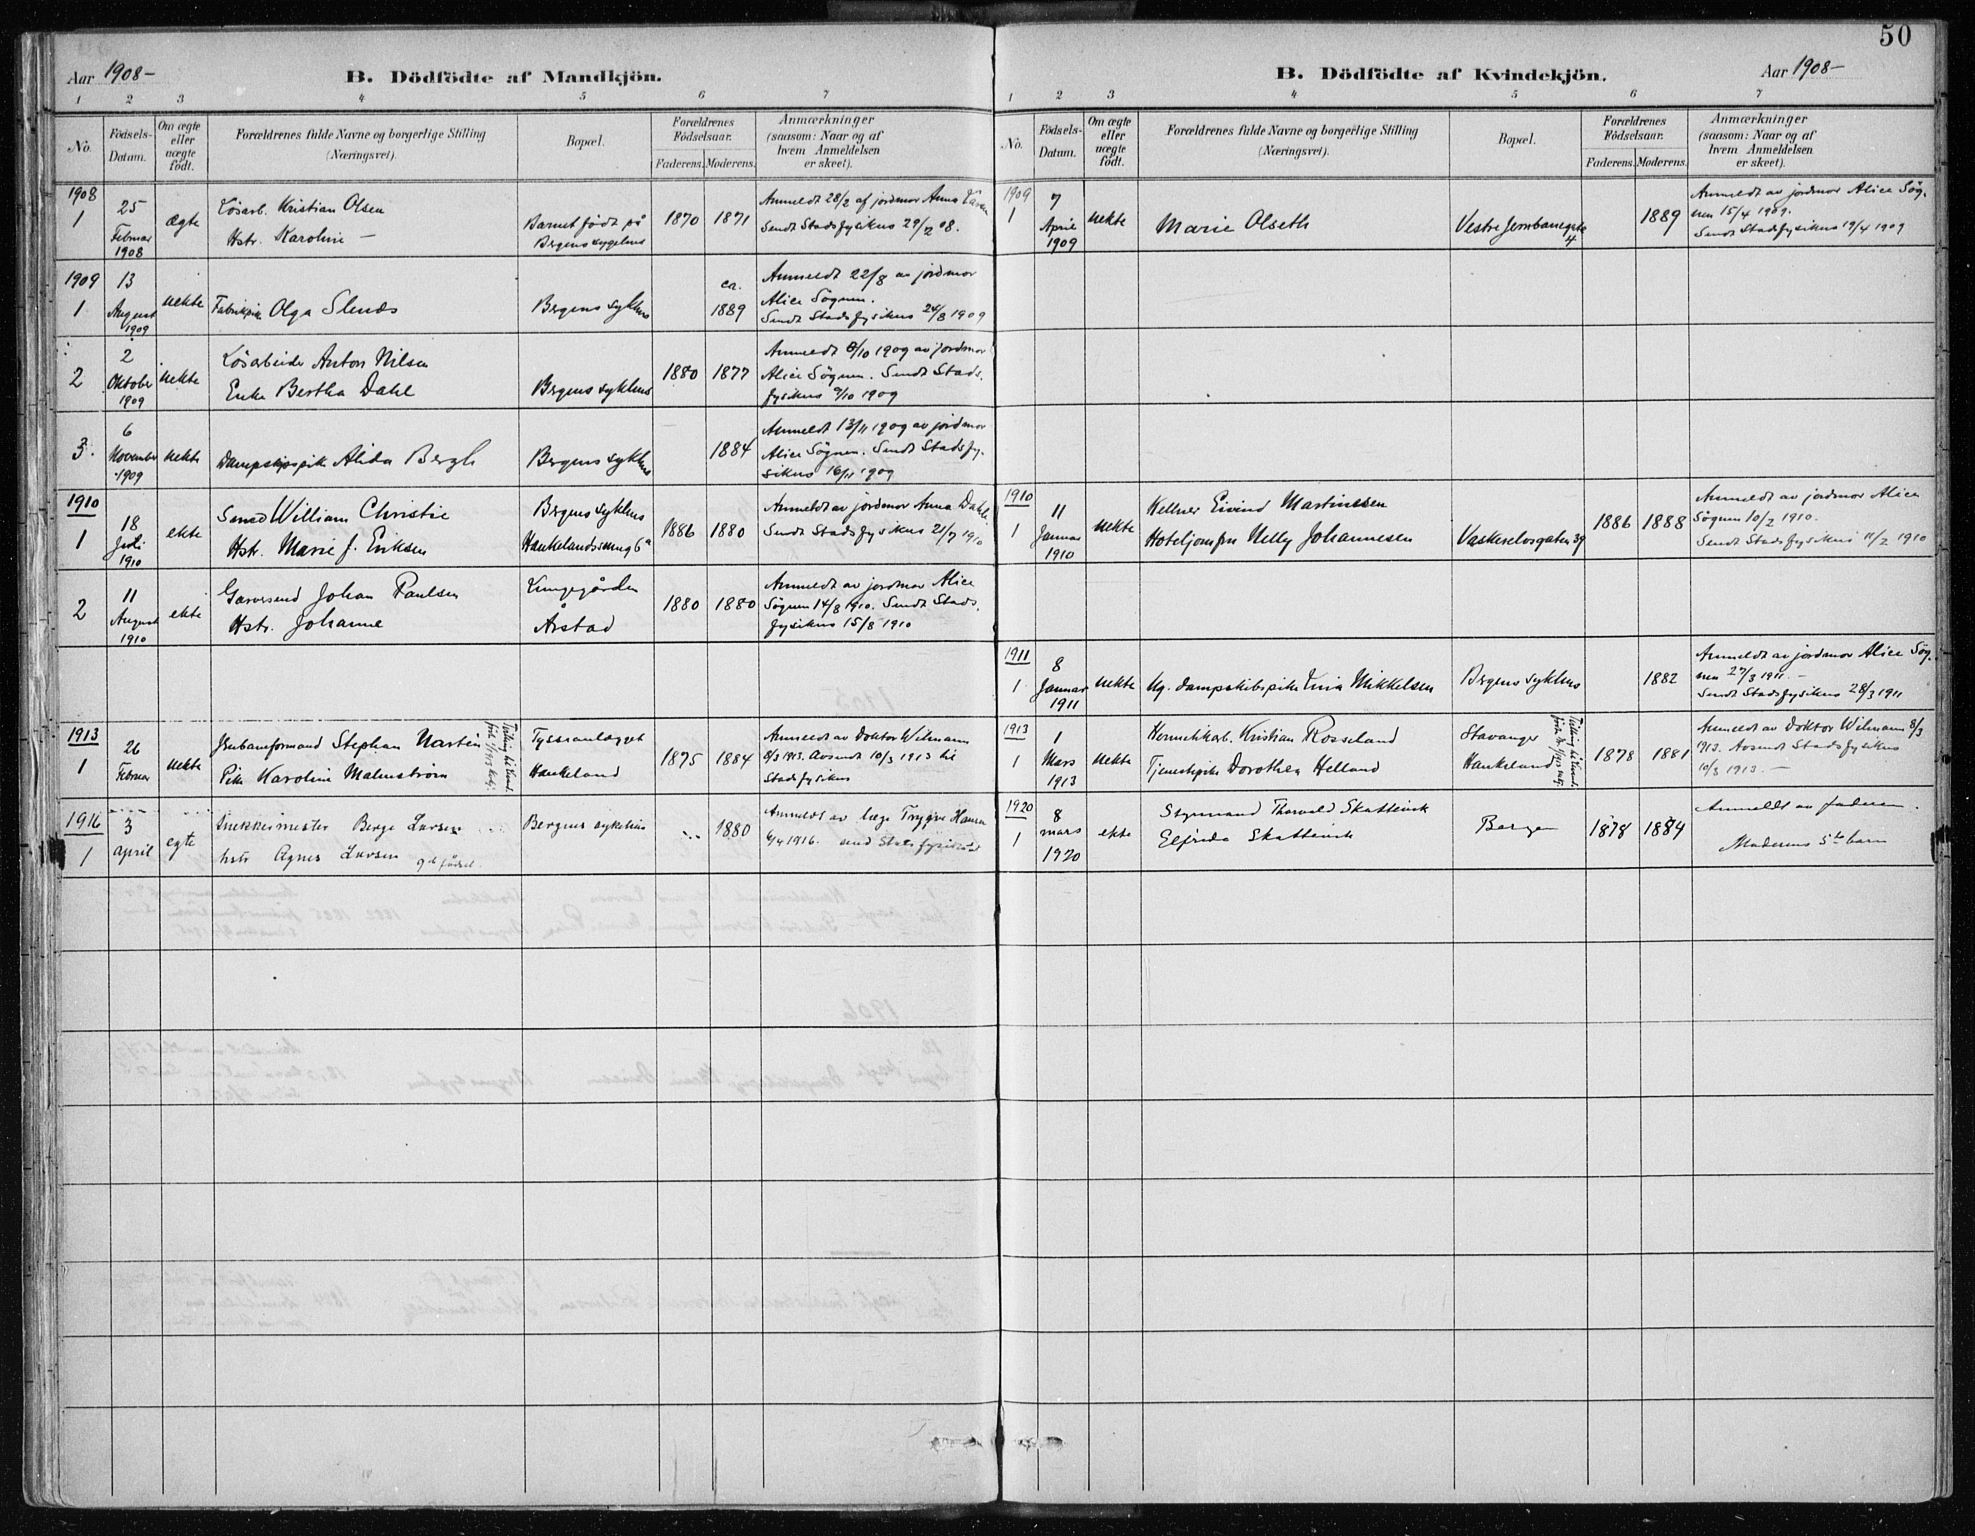 50
Aar 1908-
B. Dödfödte af Mandkjön.
1 2 3 4 5 6 7
No.
Födsels-Datum.
Om ægte eller uægte födt.
Forældrenes fulde Navne og borgerlige Stilling (Næringsvei).
Bopæl.
Forældrenes Födselsaar.
Faderens. Moderens.
Anmærkninger (saasom: Naar og af hvem Anmeldelsen er skeet).
1908
1
25 Februar 1908
ægte
Løsarb. Kristian Olsen
Hstr. Karoline —
Barnet født på
Bergens sygehus
1870 1871
Anmeldt 28/2 af jordmor Anna
Sendt Stadsfysikus 29/2 08.
1909
1
13 August 1909
uekte
Olga Slenæs
Bergens sykehus
ca. 1889
Anmeldt 22/8 av jordmor
Alice Søgnen.
Sendt Stadsfysikus 24/8 1909
2
2 Oktober 1909
uekte
Løsarbeider Anton Nilsen
Enke Bertha Dahl
Bergens sykehus
1880 1877
Anmeldt 8/10 1909 av jordmor
Alice Søgnen. Sendt Stads-
fysikus 9/10 1909
3.
6 November 1909
uekte
Dampskipspike Alida Bergh
Bergens sykehus
1884
Anmeldt 13/11 1909 av jordmor
Alice Søgnen. Sendt Stadsfy-
sikus 16/11 1909
1910
1
18 Juli 1910
ekte
Smed William Christie
Hstr. Marie J. Eriksen
Bergens sykehus
Haukelandsveien 6a
1886 1880
Anmeldt av jordmor Anna Dahl.
Sendt Stadsfysikus 21/7 1910
2
11 August 1910
ekte
Garversvend Johan Paulsen
Hstr. Johanne
Kongegården
Årstad
1880 1880
Anmeldt av jordmor Alice
Søgnen 14/8 1910. Sendt Stads-
fysikus 15/8 1910
1913
1
26 Februar
uekte
Jernbaneformand Stephan Martin
Pike Karoline Malmstrøm
Tysseanlægget
Haukeland
1875 1884
Anmeldt av Doktor Wilmann
8/3 1913. Avsendt 10/3 1913 til
Stadsfysikus
1916
1
3 april
egte
Snekkermester Berge Larsen
hstr Agnes Larsen 9de fødsel.
Bergens sykehus
1880
Anmeldt av læge Trygve Hansen
6/4 1916. send Stadsfysikus
Aar 1908-
B. Dödfödte af Kvindekjön.
1 2 3 4 5 6 7
No.
Födsels-Datum.
Om ægte eller uægte födt.
Forældrenes fulde Navne og borgerlige Stilling (Næringsvei).
Bopæl.
Forældrenes Födselsaar.
Faderens. Moderens.
Anmærkninger (saasom: Naar og af hvem Anmeldelsen er skeet).
1909
1
7 April 1909
uekte
Marie Olseth
Vestre Jernbanegate 4
1889
Anmeldt av jordmor Alice Søg-
nen 15/4 1909.
Sendt Stadsfysikus 19/4 1909
1910
1
11 Januar 1910
uekte
Kellner Eivind Martinessen
Hoteljomfru Nelly Johannesen
Vaskerelvsgaten 39
1886 1888
Anmeldt av jordmor Alice
Søgnen 10/2 1910.
Sendt Stadsfysikus 11/2 1910
1911
1
8 Januar 1911
uekte
Ug. dampskibspike Lina Mikkelsen
Bergens sykehus
1882
Anmeldt av jordmor Alice Søg-
nen 27/3 1911. -
Sendt Stadsfysikus 28/3 1911
1913
1
1 Mars 1913
uekte
Hermetikarb. Kristian Rosseland
Tjenestepike Dorothea Helland
Stavanger
Haukeland
1878 1881
Anmeldt av Doktor Wilmann 8/3
1913. Avsendt Stadsfysikus
10/3 1913. —
1920
1
8 mars 1920
ekte
Styrmand Thorvald Skattevik
Elfrida Skattevik
Bergen
1878 1884
Anmeldt av faderen.
Moderens 5te barn